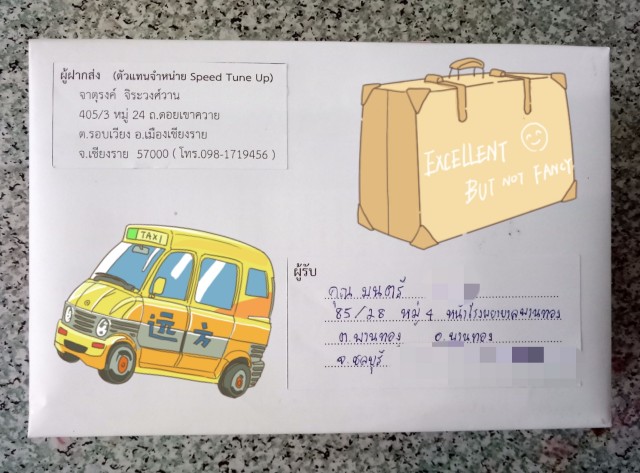 ผู้ฝากส่ง (ตัวแทนจำหน่าย Speed Tune Up)
จาตุรงค์ จิระวงศ์วาน
405/3 หมู่ 24 ถ.ดอยเขาควาย
ต.รอบเวียง อ.เมืองเชียงราย
จ.เชียงราย 57000 ( โทร.098-1719456 )
EXCELLENT
BUT NOT FANCY
TAXI
远方
ผู้รับ
คุณ มนตรี
85/28 หมู่ 4 หน้าโรงพยาบาลพานทอง
ต.พานทอง อ.พานทอง
จ.ชลบุรี